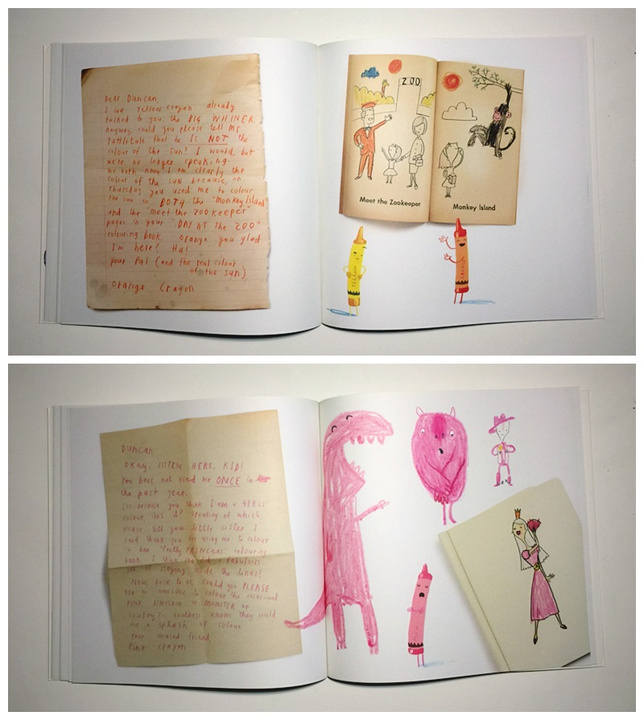 Dear Duncan,
I see Yellow Crayon already
talked to you, the BIG WHINER.
Anyway, could you please tell Mr.
Tattletale that he IS NOT the
colour of the sun? I would, but
we're no longer speaking.
We both know I am clearly the
colour of the sun because, on
Thursday, you used me to colour
the sun in BOTH the "Monkey Island"
and the "Meet the Zookeeper"
pages in your "DAY AT THE ZOO"
colouring book. Orange you glad
I'm here? Ha!
Your Pal (and the real colour
of the sun)
Orange Crayon
ZOO
Meet the Zookeeper
Monkey Island
Duncan,
OKAY, LISTEN HERE, KID!
You have not used me ONCE in
the past year.
It's because you think I am a GIRLS'
colour, isn't it? Speaking of which,
please tell your little sister I
said thank you for using me to colour
in her "Pretty PRINCESS" colouring
book. I think she did a fabulous
job of staying inside the lines!
Now, back to us. Could you PLEASE
use me sometime to colour the occasional
pink dinosaur or MONSTER or
cowboy? Goodness knows they could
use a splash of colour.
Your unused friend,
Pink Crayon